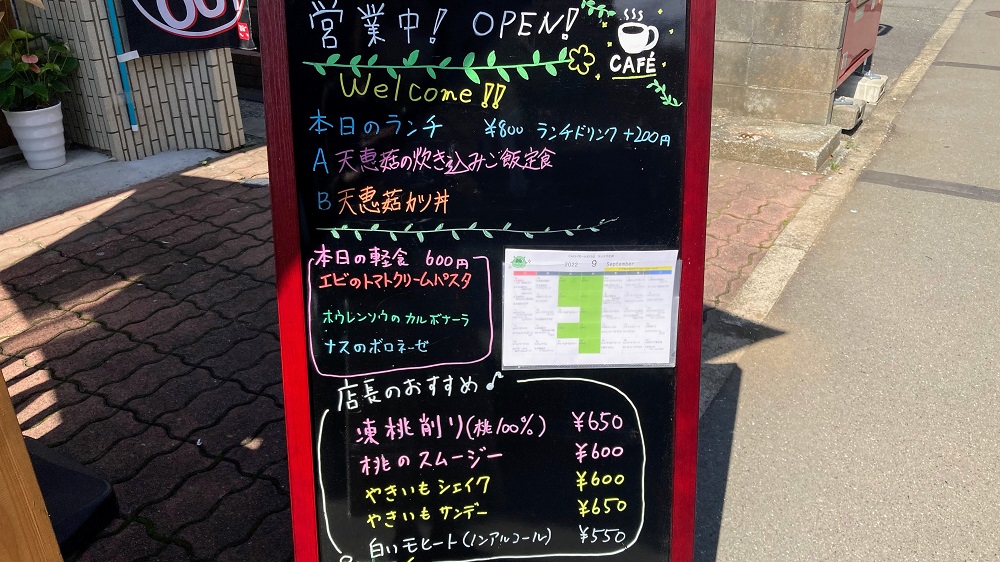 営業中! OPEN!
CAFÉ
Welcome!!
本日のランチ ¥800 ランチドリンク+200円
A 天恵菇の炊き込みご飯定食
B 天恵菇カツ丼
本日の軽食 600円
エビのトマトクリームパスタ
ホウレンソウのカルボナーラ
ナスのボロネーゼ
2022 9 September
店長のおすすめ♪
凍桃削り(桃100%) ¥650
桃のスムージー ¥600
やきいもシェイク ¥600
やきいもサンデー ¥650
白いモヒート(ノンアルコール) ¥550